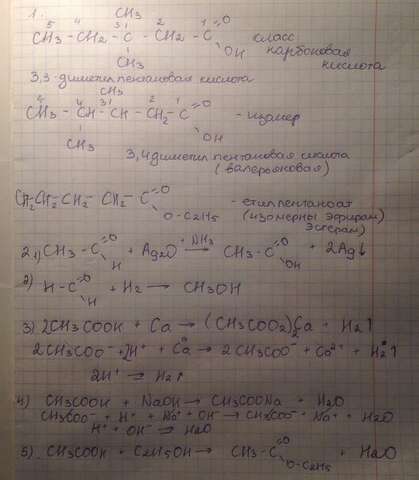 1.
CH3
5 4 3 2 1
CH3 - CH2 - C - CH2 - C =O
OH
класс карбоновая кислота
CH3
3,3-диметилпентановая кислота
CH3
5 4 3 2 1
CH3 - CH - CH - CH2 - C =O
OH
- изомер
CH3
3,4диметилпентановая кислота
(валерьяновая)
CH3-CH2-CH2-CH2-C =O
O-C2H5
- етилпентаноат
(изомерны эфирам)
эстерам)
2.1) CH3-C =O H + Ag2O NH3→ CH3-C =O OH + 2Ag↓
2) H-C =O H + H2 → CH3OH
3) 2CH3COOH + Ca → (CH3COO2)2Ca + H2↑
2CH3COO⁻ + 2H⁺ + Ca⁰ → 2CH3COO⁻ + Ca²⁺ + H2⁰↑
2H⁺ → H2↑
4) CH3COOH + NaOH → CH3COONa + H2O
CH3COO⁻ + H⁺ + Na⁺ + OH⁻ → CH3COO⁻ + Na⁺ + H2O
H⁺ + OH⁻ → H2O
5) CH3COOH + C2H5OH → CH3-C =O O-C2H5 + H2O